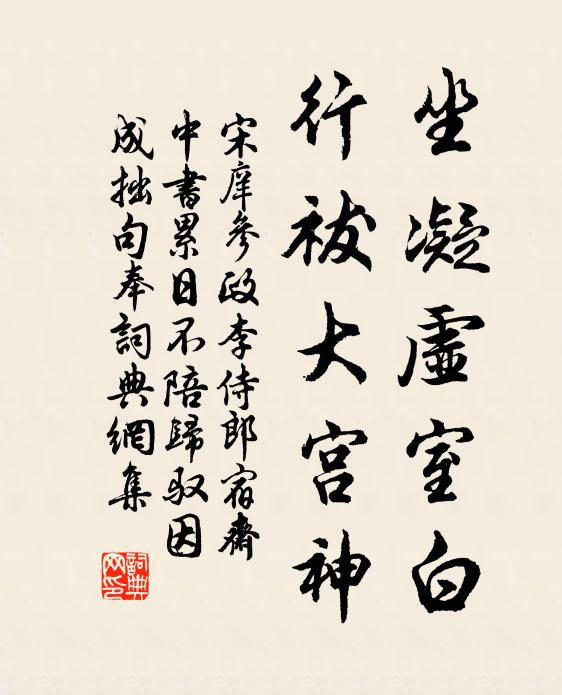 坐凝虛室白
行祓大宮神
宋庠參政李侍郎宿齋
中書累日不陪歸馭因
成拙句奉詞典網集
詞典
网印